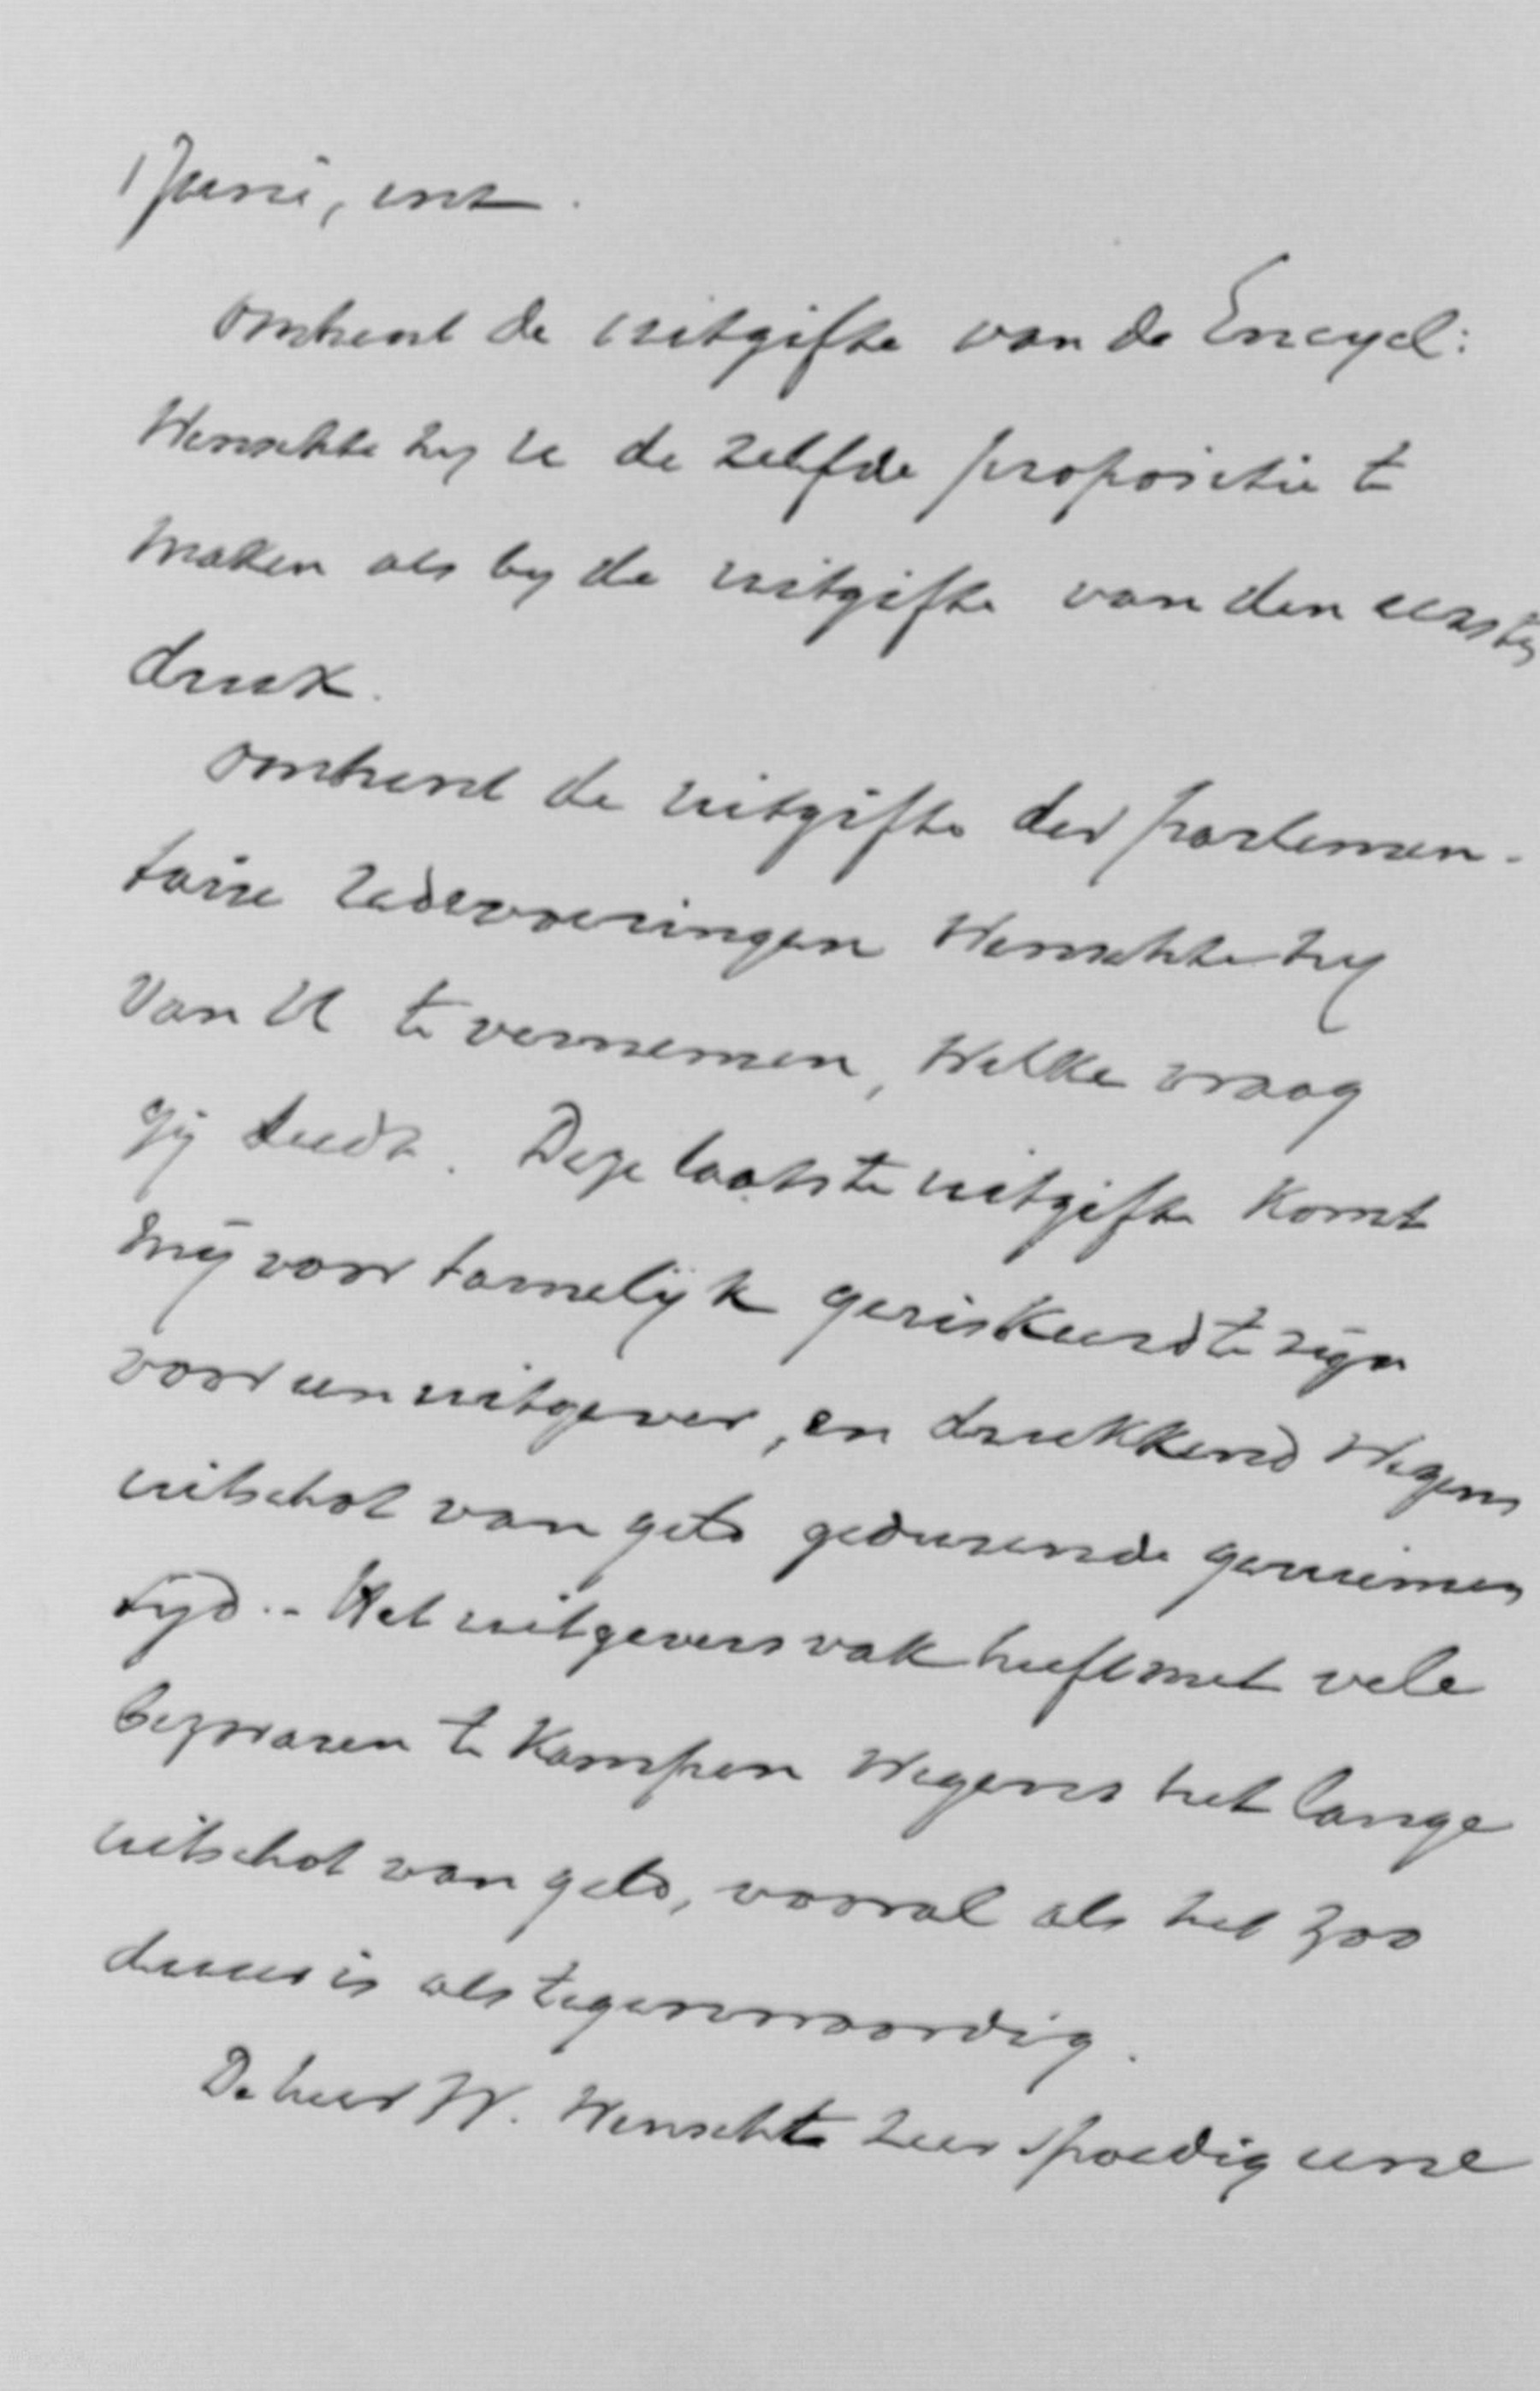 1 Juni, int.
omtrent de uitgifte van de Encycl:
Wenschte hy U de zelfde propositie te
maken als by de uitgifte van den eersten
druk.
omtrent de uitgifte der parlemen-
taire redevoeringen Wenschte hy
van U te vernemen, Welke vraag
gij deedt. Deze laatste uitgifte komt
mij voor tamelijk geriskeerd te zijn
voor een uitgever, en drukkend Wegens
uitschot van geld gedurende geruimen
tyd.- Het uitgeversvak heeft met vele
bezwaren te Kampen Wegens het lange
uitschot van geld, vooral als het zoo
duur is als tegenwoordig.
De heer W. Wenschte zeer spoedig eene